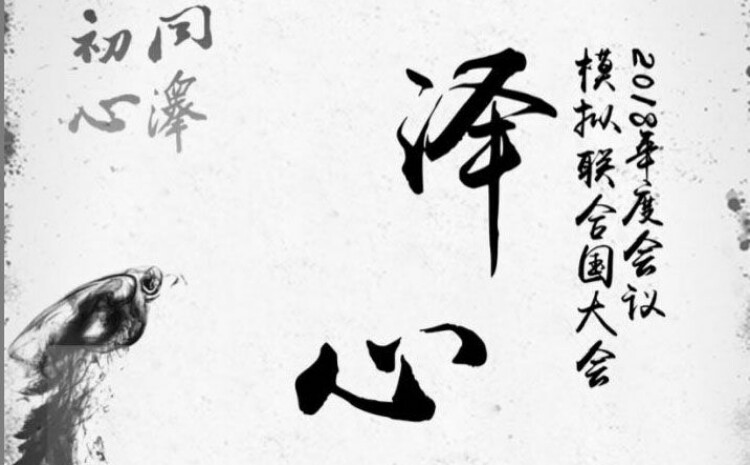 2018年度会议
模拟联合国大会
泽心
同澤
初心